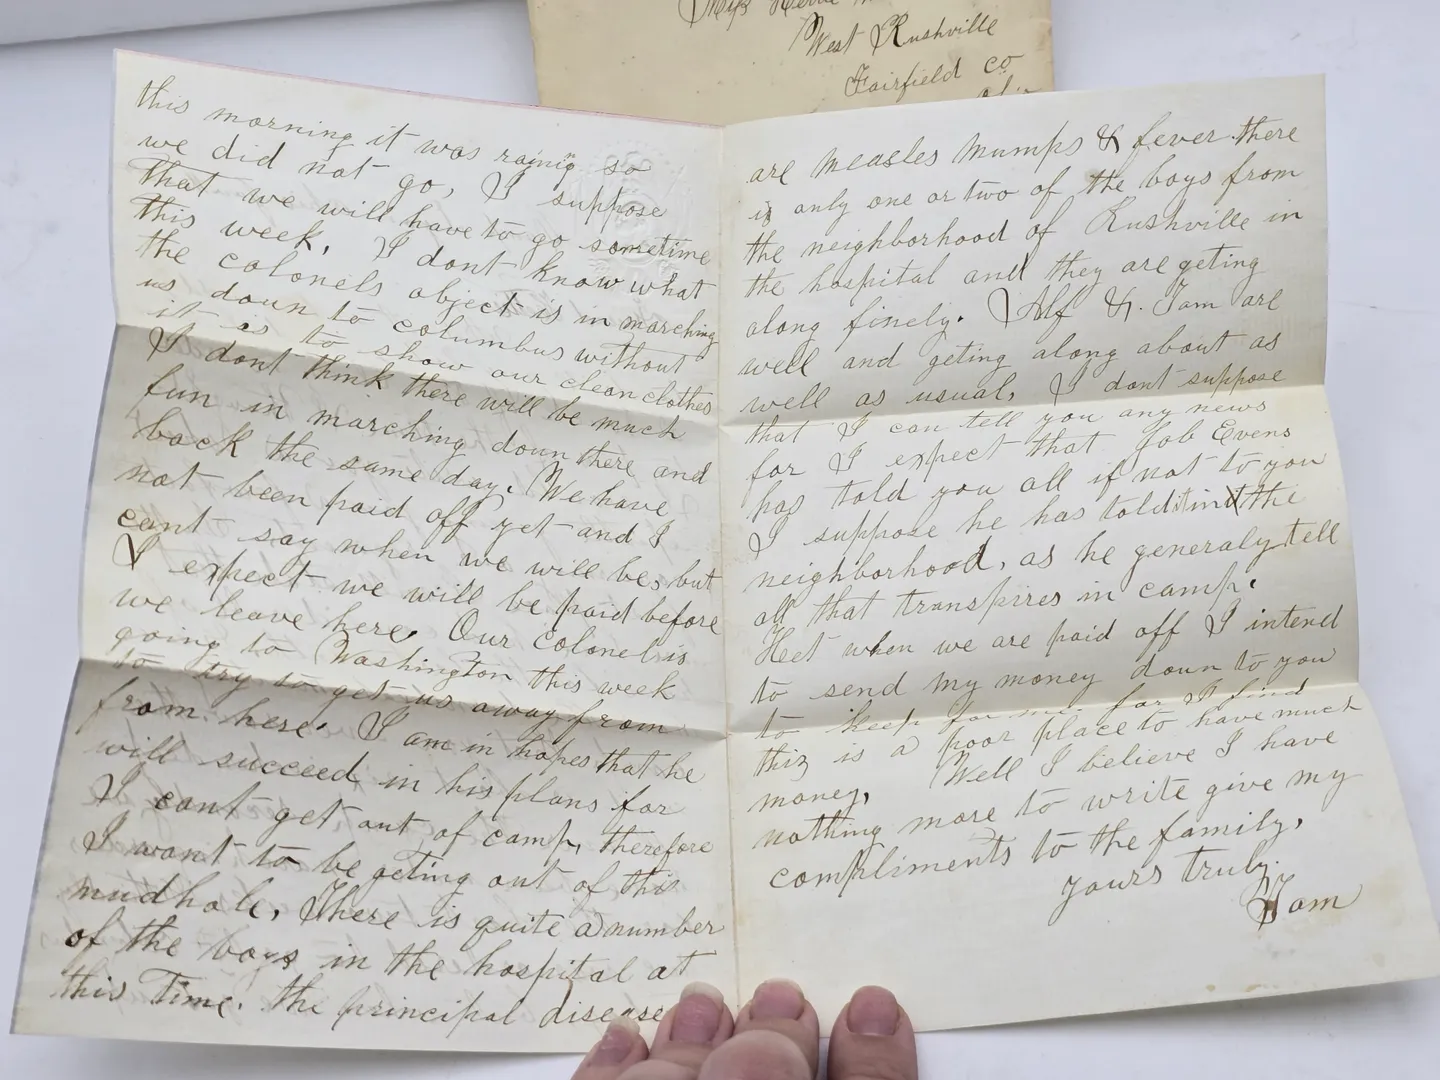 Miss
West Rushville
Fairfield co
this morning it was raining so
we did not go, I suppose
that we will have to go sometime
this week, I dont know what
the colonels object is in marching
us doun to columbus without
it is to show our clean clothes
I dont think there will be much
fun in marching doun there and
back the same day. We have
not been paid off yet and I
cant say when we will be, but
I expect we will be paid before
we leave here. Our Colonel is
going to Washington this week
to try to get us away from
from here. I am in hopes that he
will succeed in his plans for
I cant get out of camp, therefore
I want to be geting out of this
mudhole, There is quite a number
of the boys in the hospital at
this Time. the principal disease
are measles mumps & fever there
is only one or two of the boys from
the neighborhood of Rushville in
the hospital and they are geting
along finely. Alf & Tom are
well and geting along about as
well as usual, I dont suppose
that I can tell you any news
for I expect that Job Evens
has told you all if not to you
I suppose he has told it in the
neighborhood, as he generaly tell
all that transpires in camp.
Het when we are paid off I intend
to send my money doun to you
to keep for me for I find
this is a poor place to have much
money, Well I believe I have
nothing more to write give my
compliments to the family,
yours truly.
Tom